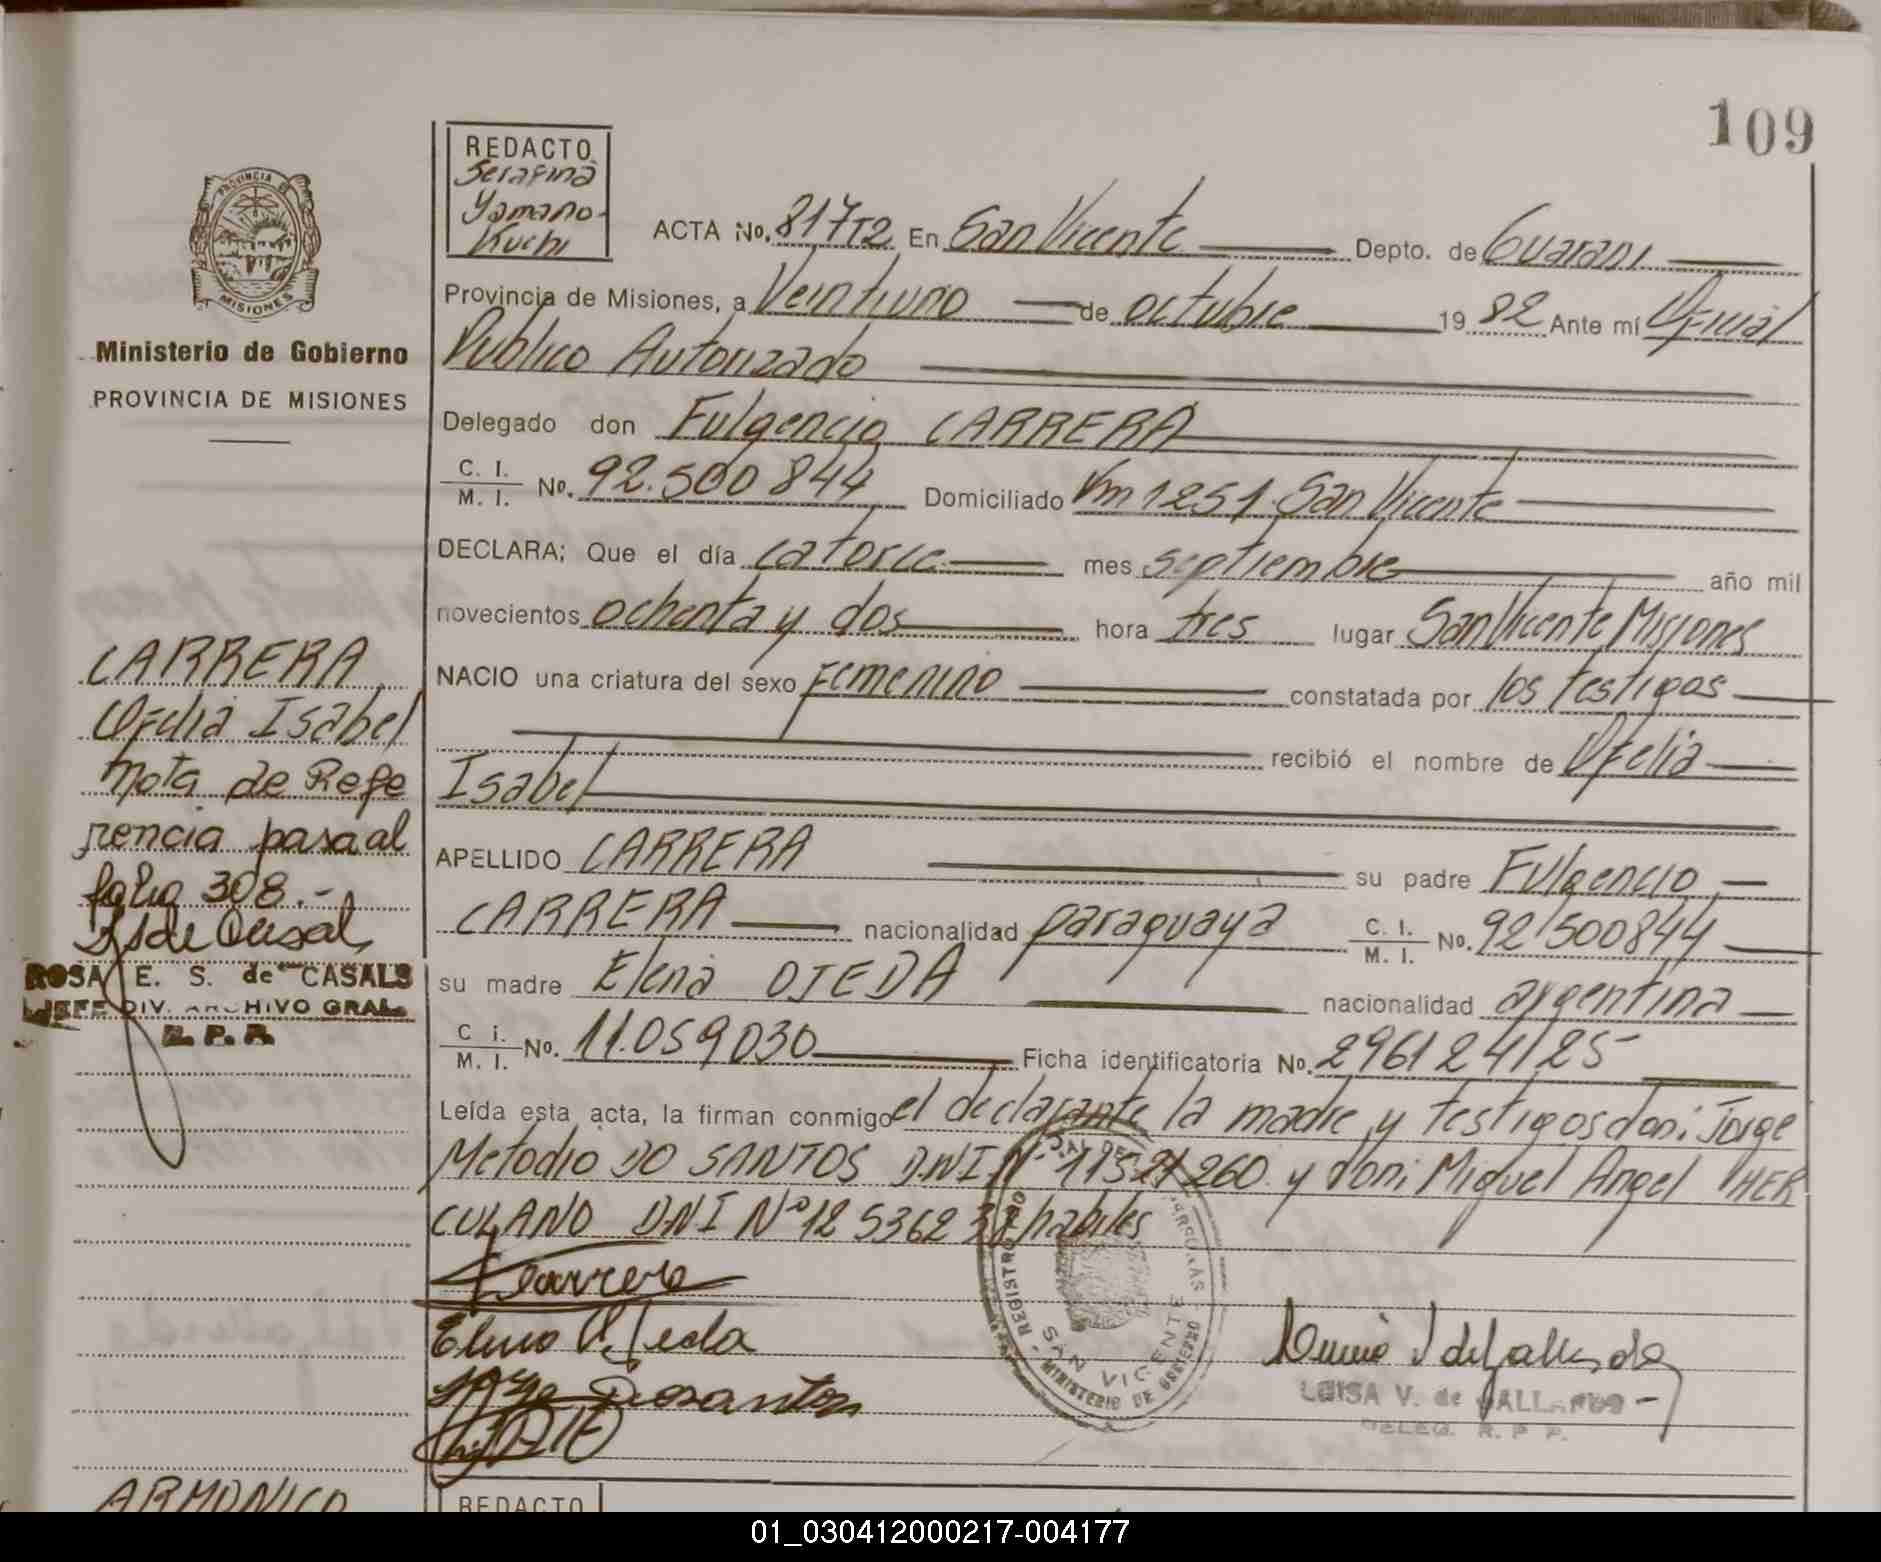 109
REDACTO
Serafina
Yamano-
Kuchi
ACTA No. 817T2 En San Vicente Depto. de Guarani
PROVINCIA DE
MISIONES
Provincia de Misiones, a Veintiuno de octubre 19 82 Ante mí Oficial
Publico Autorizado
Ministerio de Gobierno
PROVINCIA DE MISIONES
Delegado don Fulgencio CARRERA
C. I.
M. I. No. 92.500844 Domiciliado Km 1251 San Vicente
DECLARA: Que el día catorce mes septiembre año mil
novecientos ochenta y dos hora tres lugar San Vicente Misiones
NACIO una criatura del sexo Femenino constatada por los testigos
recibió el nombre de Ofelia
Isabel
APELLIDO CARRERA su padre Fulgencio
CARRERA nacionalidad paraguaya C. I.
M. I. No. 92'500844
su madre Elena OJEDA nacionalidad argentina
C i.
M. I. No. 11.059030 Ficha identificatoria No. 296124/25
Leída esta acta, la firman conmigo el declarante la madre y testigos don: Jorge
Metodio DO SANTOS D.N.I. Nº 11521260 y don: Miguel Angel HER
CULANO D.N.I Nº 12 536238 habiles
CARRERA
Ofelia Isabel
Nota de Refe
rencia pasa al
folio 308.-
ROSA E. S. de CASALS
JEFE DIV. ARCHIVO GRAL.
R. P. P.
Carrera
Elena Ojeda
Jorge Dosantos
REGISTRO
SAN VICENTE
MINISTERIO DE GOBIERNO
LUISA V. de GALLARDO
DELEG. R. P. P.
ARMONICO
REDACTO
01_030412000217-004177